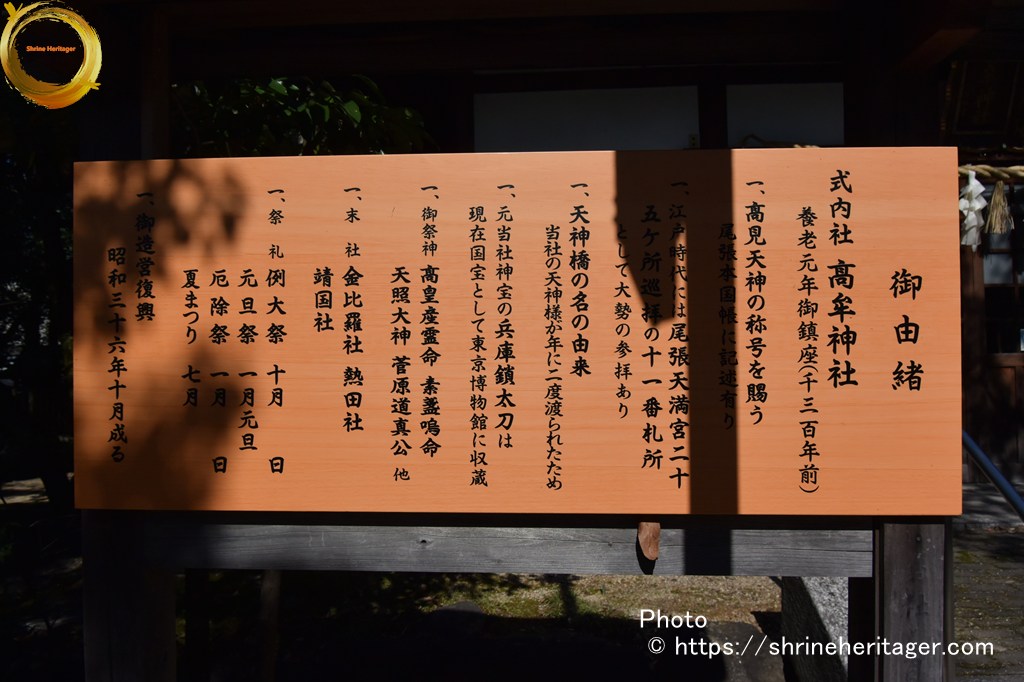 Shrine Heritager
御由緒
式内社 高牟神社
養老元年御鎮座(千三百年前)
一、高見天神の称号を賜う
尾張本国帳に記述有り
一、江戸時代には尾張天満宮二十
五ケ所巡拝の十一番札所
として大勢の参拝あり
一、天神橋の名の由来
当社の天神様が年に二度渡られたため
一、元当社神宝の兵庫鎖太刀は
現在国宝として東京博物館に収蔵
一、御祭神 高皇産霊命 素盞嗚命
天照大神 菅原道真公 他
一、末社 金比羅社 熱田社
靖国社
一、祭礼 例大祭 十月 日
元旦祭 一月元旦
厄除祭 一月 日
夏まつり 七月
一、御造営復興
昭和三十六年十月成る
Photo
© https://shrineheritager.com